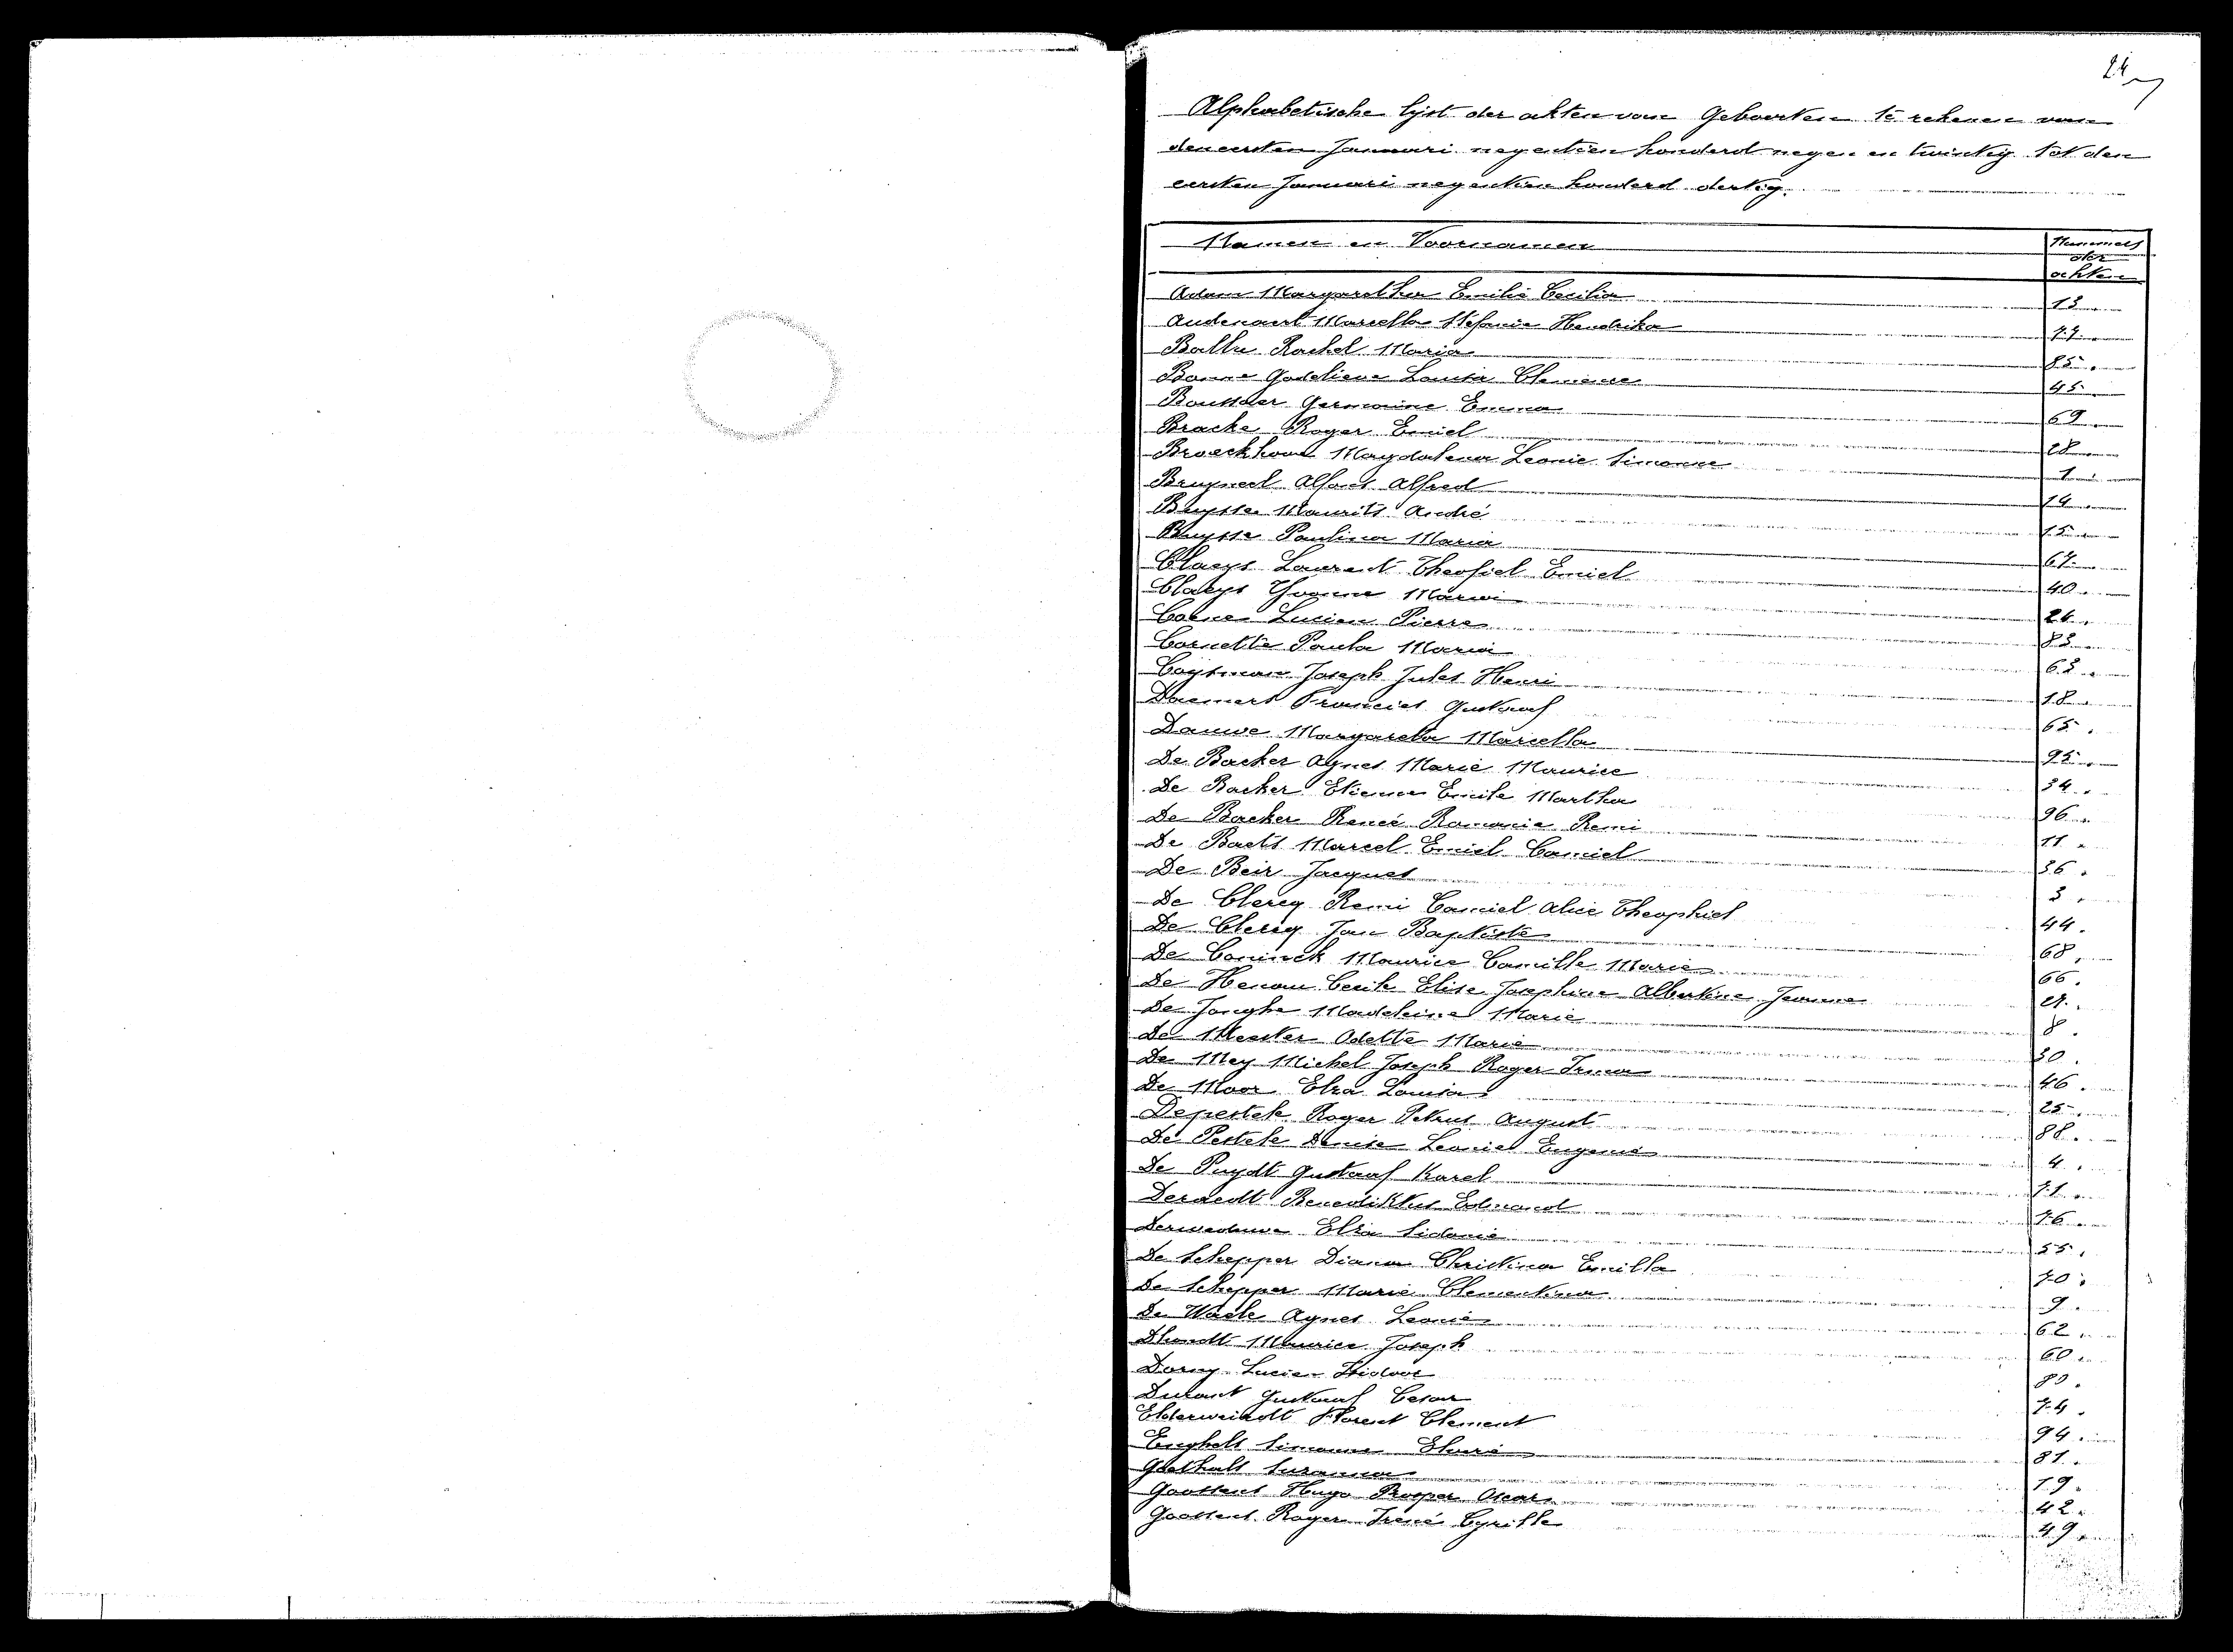 24
Alphabetische lijst der akten van Geboorten te rekenen van
den eersten Januari negentien honderd negen en twintig tot den
eersten Januari negentien honderd dertig.
Namen en Voornamen
Nummers
der
akten
Adam Margaretha Emilie Cecilia 13.
Audenaert Marcella Stefanie Hendrika 77.
Balthe Rachel Maria 85.
Bonne Godelieve Louisa Clemence 45.
Germaine Emma 69.
Bracke Roger Emiel 28.
Broeckhove Magdalena Leonie Simonne 1.
Bruyneel Alfons Alfred 14.
Buysse Maurits André 15.
Buysse Paulina Maria 67.
Claeys Laurent Theofiel Emiel 40.
Claeys Yvonne Maria 24.
Lucien Pierre 83.
Cornette Paula Maria 63.
Joseph Jules Henri 18.
Francies Gustaaf 65.
Dauwe Margareta Marcella 95.
De Backer Agnes Marie Maurice 34.
De Backer Etienne Emile Martha 96.
De Backer Renée Romanie Remi 11.
De Baets Marcel Emiel Camiel 36.
De Beir Jacques 3.
De Clercq Remi Camiel Alice Theophiel 44.
De Clercq Jan Baptiste 68.
De Coninck Maurice Camille Marie 66.
De Cecile Elise Josephine Albertine Jeanne
De Jonghe Madeleine Marie 8.
De Meester Odette Marie 30.
De Mey Michel Joseph Roger Irma 46.
De Moor Elza Louisa 25.
Depestele Roger Petrus August 88.
De Pestele Denise Leonie Eugenie 4.
De Puydt Gustaaf Karel 71.
Deraedt Benediktus Edmond 76.
Derweduwe Elza Sidonie 55.
De Schepper Diana Christina Emilla 70.
De Schepper Marie Clementina 9.
De Waele Agnes Leonie 62.
Dhondt Maurice Joseph 60.
Dorny Lucien Isidoor
Durant Gustaaf Cesar 74.
Elderweirdt Florent Clement 94.
Enghels Simonne 81.
Goethals Suzanna 19.
Goossens Hugo Prosper Oscar 42.
Goossens Roger Irené Cyrille 49.